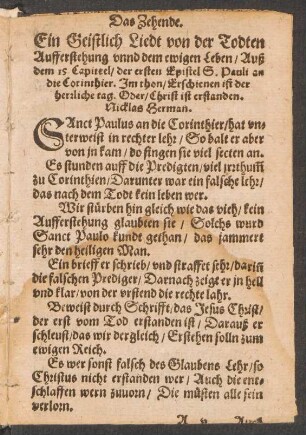 Das Zehende.
Ein Geistlich Liedt von der Todten
Aufferstehung vnnd dem ewigen Leben / Auß
dem 15 Capittel / der ersten Epistel S. Pauli an
die Corinthier. Im thon / Erschienen ist der
herrliche tag. Oder / Christ ist erstanden.
Nicklas Herman.
SAnct Paulus an die Corinthier / hat vn-
terweist in rechter lehr / So balt er aber
von jn kam / do fingen sie viel secten an.
Es stunden auff die Predigten / viel jrzthumb
zu Corinthien / Darunter war ein falsche lehr /
das nach dem Todt kein leben wer.
Wir stürben hin gleich wie das vieh / kein
Aufferstehung glaubten sie / Solchs wurd
Sanct Paulo kundt gethan / das jammert
sehr den heiligen Man.
Ein brieff er schrieb / vnd straffet sehr / dariñ
die falschen Prediger / Darnach zeigt er jn hell
vnd klar / von der vrstend die rechte lahr.
Beweist durch Schrifft / das Jesus Christ /
der erst vom Tod erstanden ist / Darauß er
schleust / das wir der gleich / Erstehen solln zum
ewigen Reich.
Es wer sonst falsch des Glaubens Lehr / so
Christus nicht erstanden wer / Auch die ent-
schlaffen wern zuuorn / Die müsten alle sein
verlorn.
Auch